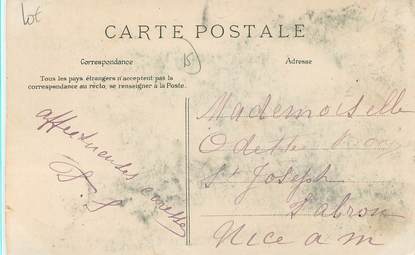 Lot
CARTE POSTALE
Correspondance
15
Adresse
Tous les pays étrangers n'acceptent pas la
correspondance au recto, se renseigner à la Poste.
Mademoiselle
Odette
St Joseph
Fabron
Nice a m
affectueuses caresses